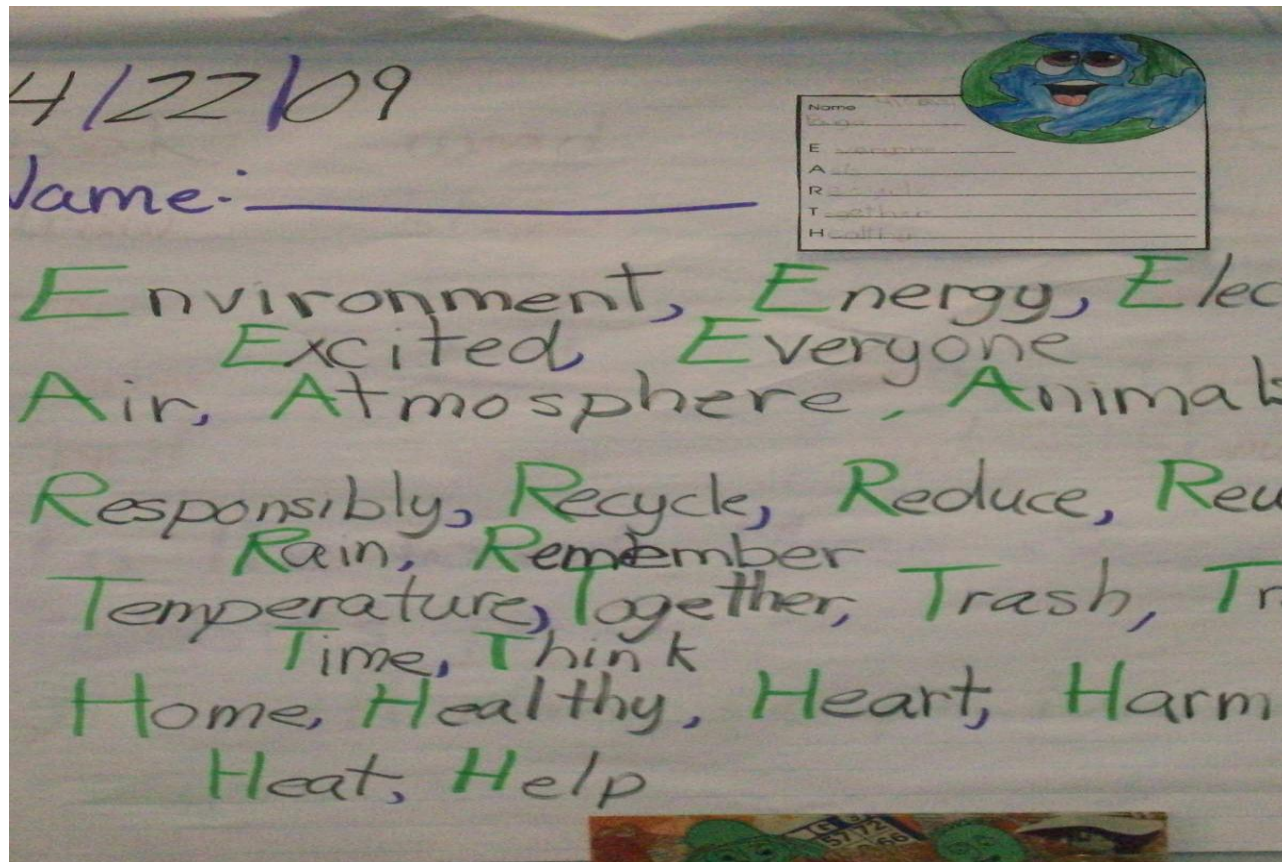 4/22/09
Name:
Name
E
A
R
T
H
Environment, Energy, Elec
Excited, Everyone
Air, Atmosphere, Animals
Responsibly, Recycle, Reduce, Reu
Rain, Remember
Temperature, Together, Trash, Tr
Time, Think
Home, Healthy, Heart, Harm
Heat, Help